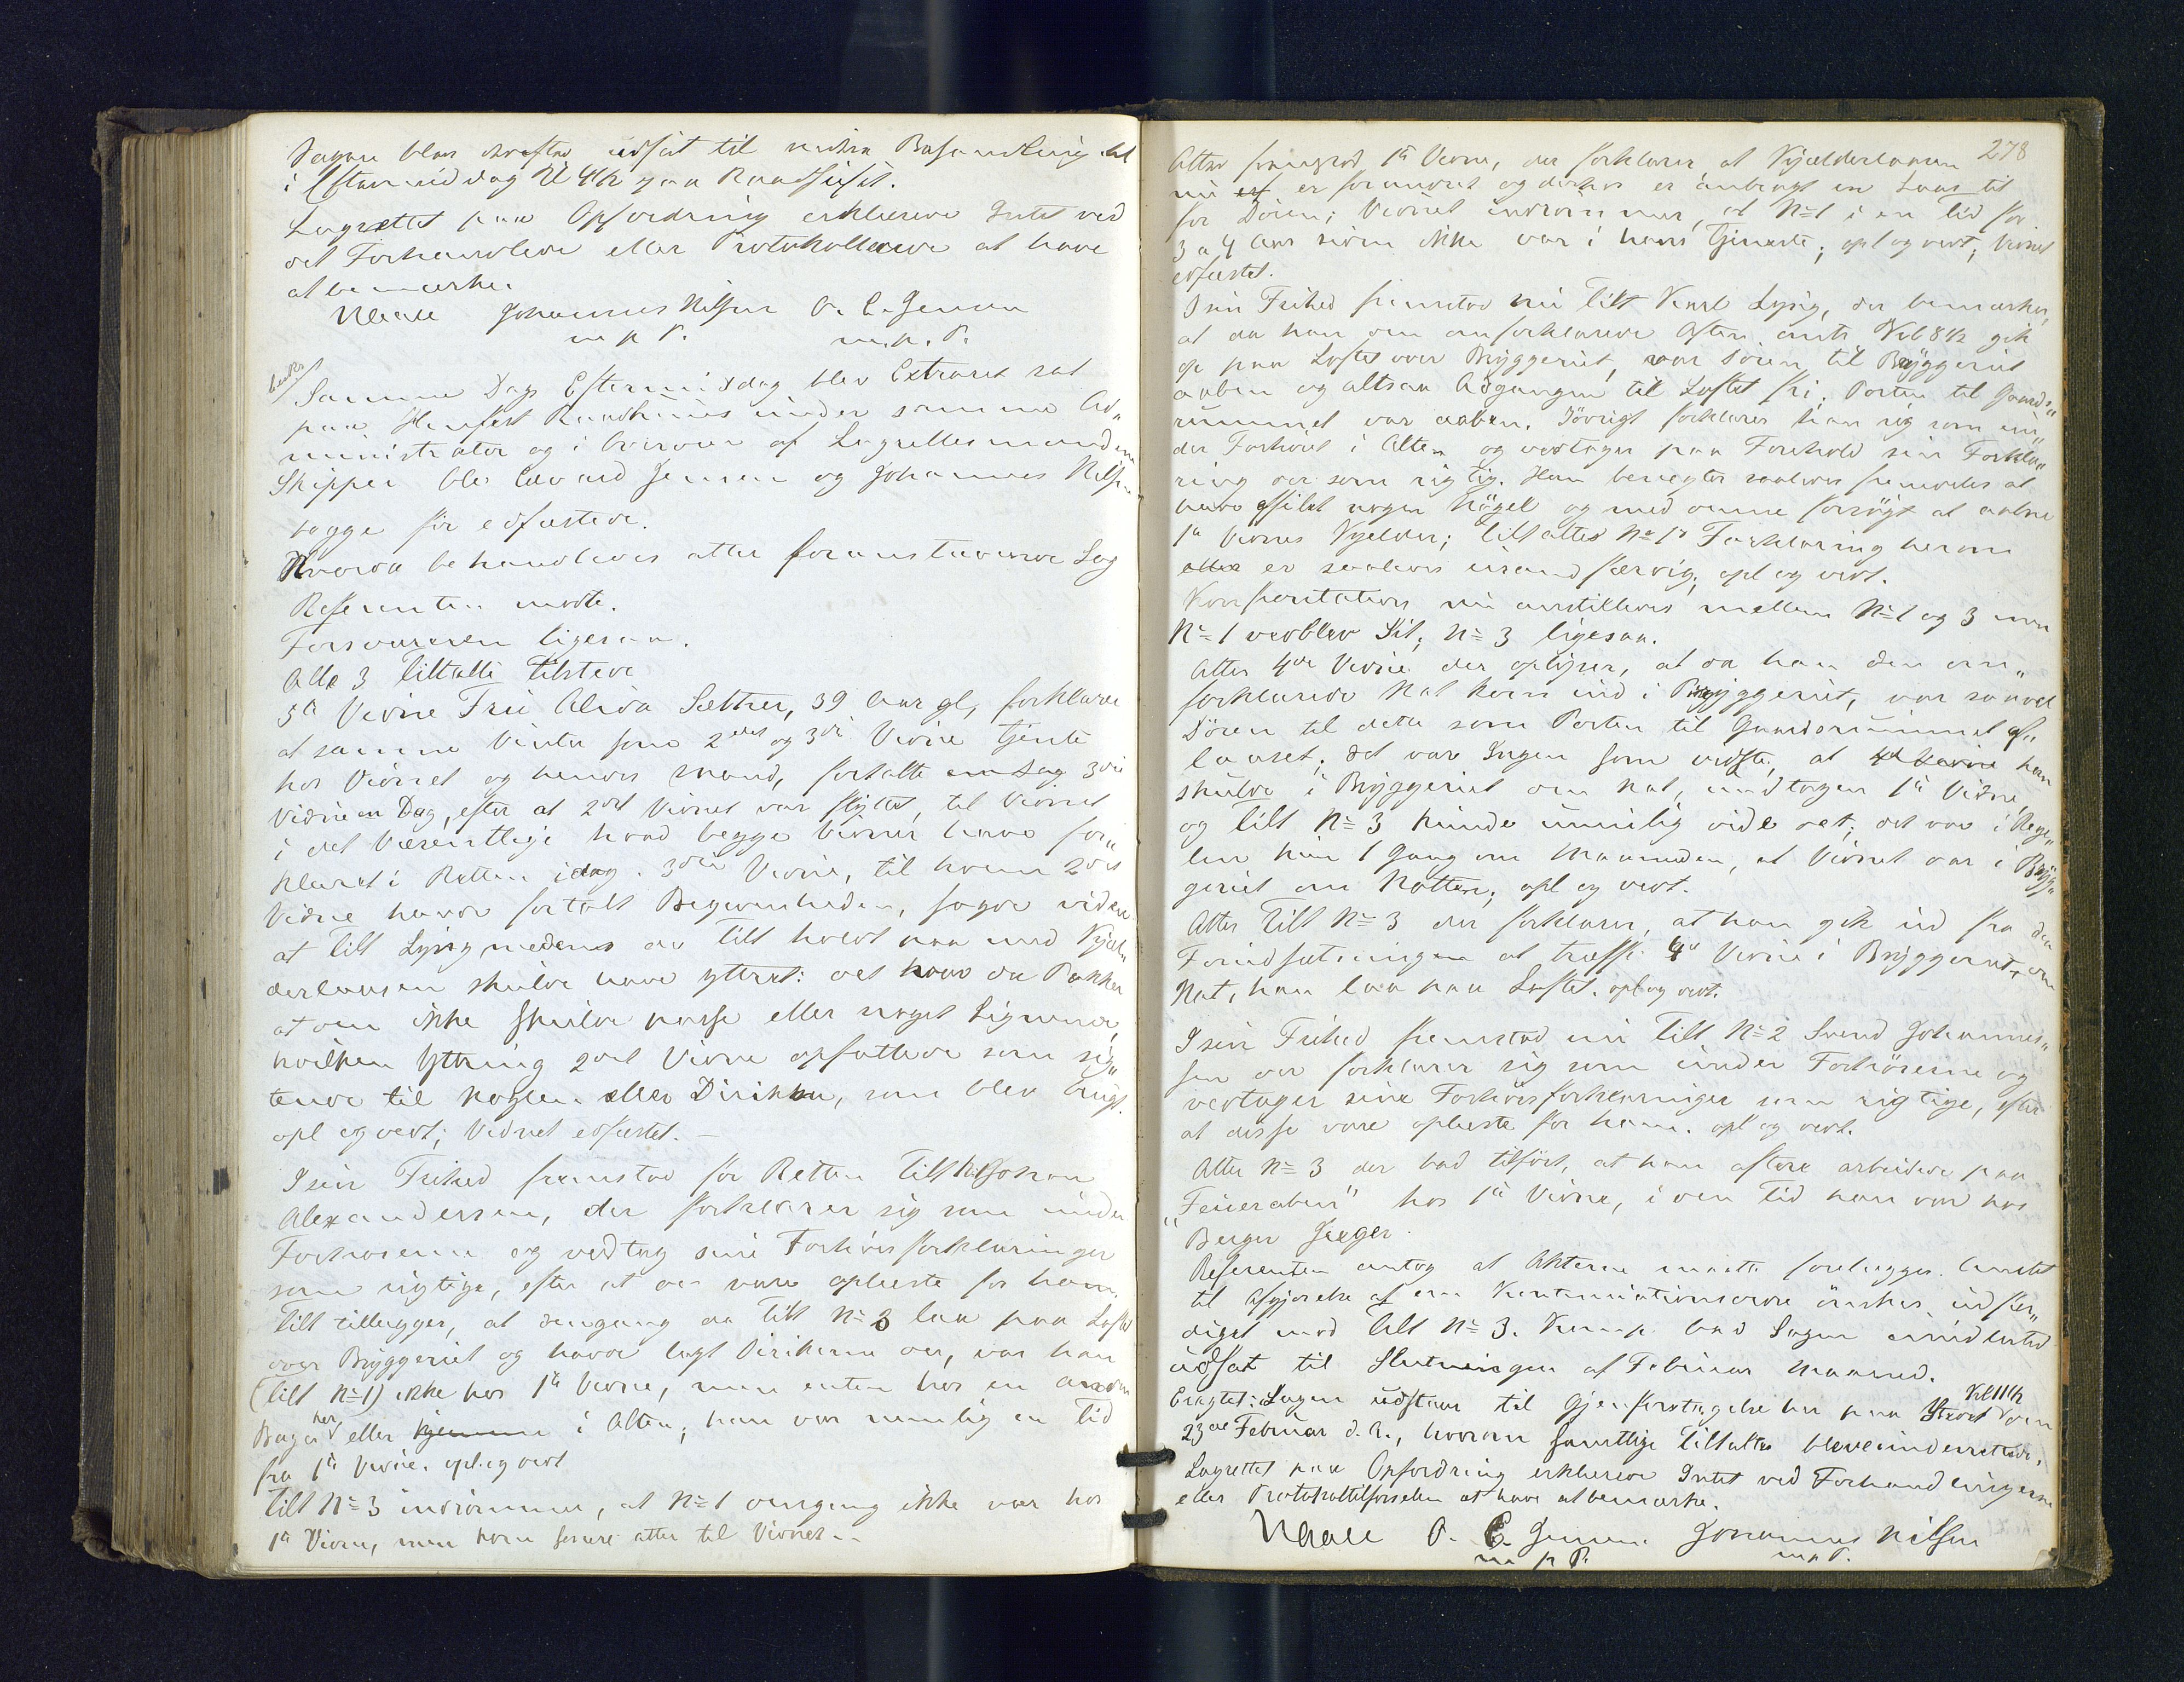 Sagen blev derefter udsat til videre Behandling
i Eftermiddag Kl 4½ paa Raadhuset.
Lagrettet paa Opfordring erklærede Intet ved
det Forhandlede eller Protokollerede at have
at bemærke.
Johannes Nilsen O. E. Jensen
m. p. P. m. p. P.
Samme Dags Eftermiddag blev Extraret sat
paa Hamfest Raadhuus under samme Ad„
ministrator og i Overvær af Lagrettesmændene
Skipper Ole Edvard Jensen og Johannes Nilsen
begge før edfæstede.
Hvorda behandledes atter foranstaaende Sag
Referenten mødte.
Forsvareren ligesaa.
Alle 3 Tiltalte tilstede
5te Vidne Fru Alida Sæther, 39 Aar gl, forklarer
at samme Vinter som 2det og 3die Vidne tjente
hos Vidnet og hendes Mand, fortalte en Dag 3die
Vidne en Dag, efter at 2det Vidnet var flyttet, til Vidnet
i det Væsentlige hvad begge Vidner have for„
klaret i Retten idag. 3die Vidne, til hvem 2det
Vidne havde fortalt Begivenheden, sagde videre
at Tilt Lyng medens de Tilt holdt paa med Kjæl„
derlaasen skulde have yttret: det var da Pokker
at den ikke skulde passe eller noget Lignende,
hvilken Yttring 2det Vidne opfattede som sig„
tende til Nøglen eller Dirikken, som blev brugt.
opl og vedt; Vidnet edfæstet. —
I sin Frihed fremstod for Retten Tilt No 1 Johan
Alexandersen, der forklarer sig som under
Forhørerne og vedtog sine Forhørsforklaringer
som rigtige, efter at de vare oplæste for ham.
Tilt tillægger, at dengang da Tilt No 3 laa paa Loftet
over Bryggeriet og havde lagt Dirikerne der, var han
(Tilt No 1) ikke hos 1te Vidne, men enten hos en anden
Bager her eller hjemme i Alten; han var nemlig en Tid
fra 1te Vidne. opl. og vedt
Tilt No 3 indrømmer, at No 1 dengang ikke var hos
1te Vidne, men kom senere atter til Vidnet. —
278
Atter fremstod 1te Vidne, der forklarer at Kjælderlaasen
nu er er forandret og derhos er anbragt en Laas til
for Døren; Vidnet indrømmer, at No 1 i en Tid for
3 a 4 Aar siden ikke var i hans Tjeneste; opl og vedt; Vidnet
edfæstet.
I sin Frihed fremstod nu Tilt Karl Lyng, der bemærker,
at da han den omforklarede Aften omtr Kl 8½ gik
op paa Loftet over Bryggeriet, var Døren til Bryggeriet
aaben og altsaa Adgangen til Loftet fri; Porten til Gaards„
rummet var aaben. Iøvrigt forklarer han sig som un„
der Forhøret i Alten og vedtager paa Forehold sin Forkla„
ring der som rigtig. Han benegter saaledes fremdeles at
have affilet nogen Nøgel og med denne forsøgt at aabne
1te Vidnes Kjelder; tiltaltes No 1s Forklaring herom
atter er saaledes usandfærdig, opl og vedt.
Konfrontation nu anstilledes mellem No 1 og 3 men
No 1 vedblev Sit, No 3 ligesaa.
Atter 4de Vidne der oplyser, at da han den om„
forklarede Nat kom ind i Bryggeriet, var saavel
Døren til dette som Porten til Gaardsrummet af„
laaset; det var Ingen som vidste, at 4de Vidne han
skulde i Bryggeriet om Nat, undtagen 1te Vidne,
og Tilt No 3 kunde umulig vide det; det var i Rege„
len kun 1 Gang om Maaneden, at Vidnet var i Bryg„
geriet om Natten; opl og vedt.
Atter Tilt No 3 der forklarer, at han gik ud fra den
Forudsætningen at træffe 4de Vidne i Bryggeriet, om
Nat, han laa paa Loftet. opl og vedt.
I sin Frihed fremstod nu Tilt No 2 Svend Johannes„
sen der forklarer sig som under Forhørerne og
vedtager sine Forhørsforklaringer som rigtige, efter
at disse vare oplæste for ham. opl og vedt.
Atter No 3 der bad tilført, at han oftere arbeidede paa
„Feieraben" hos 1te Vidne, i den Tid han var hos
Berger Jæger.
Referenten antog at Akterne maatte forelægges Amtet
til Afgjørelse af om Kontinuationsordre ønskes udfær„
diget mod Tilt No 3. Komp. bad Sagen imidlertid
udsat til Slutningen af Februar Maaned.
Eragtet: Sagen udstaar til Gjenforetagelse her paa Stedet den Kl 11½
23de Februar d. A., hvorom samtlige Tiltalte bleve underrettede.
Lagrettet paa Opfordring erklærede Intet ved Forhandlingerne
eller Protokoltilførselen at have at bemærke.
O. E. Jensen Johannes Nilsen
m p P. m p P.